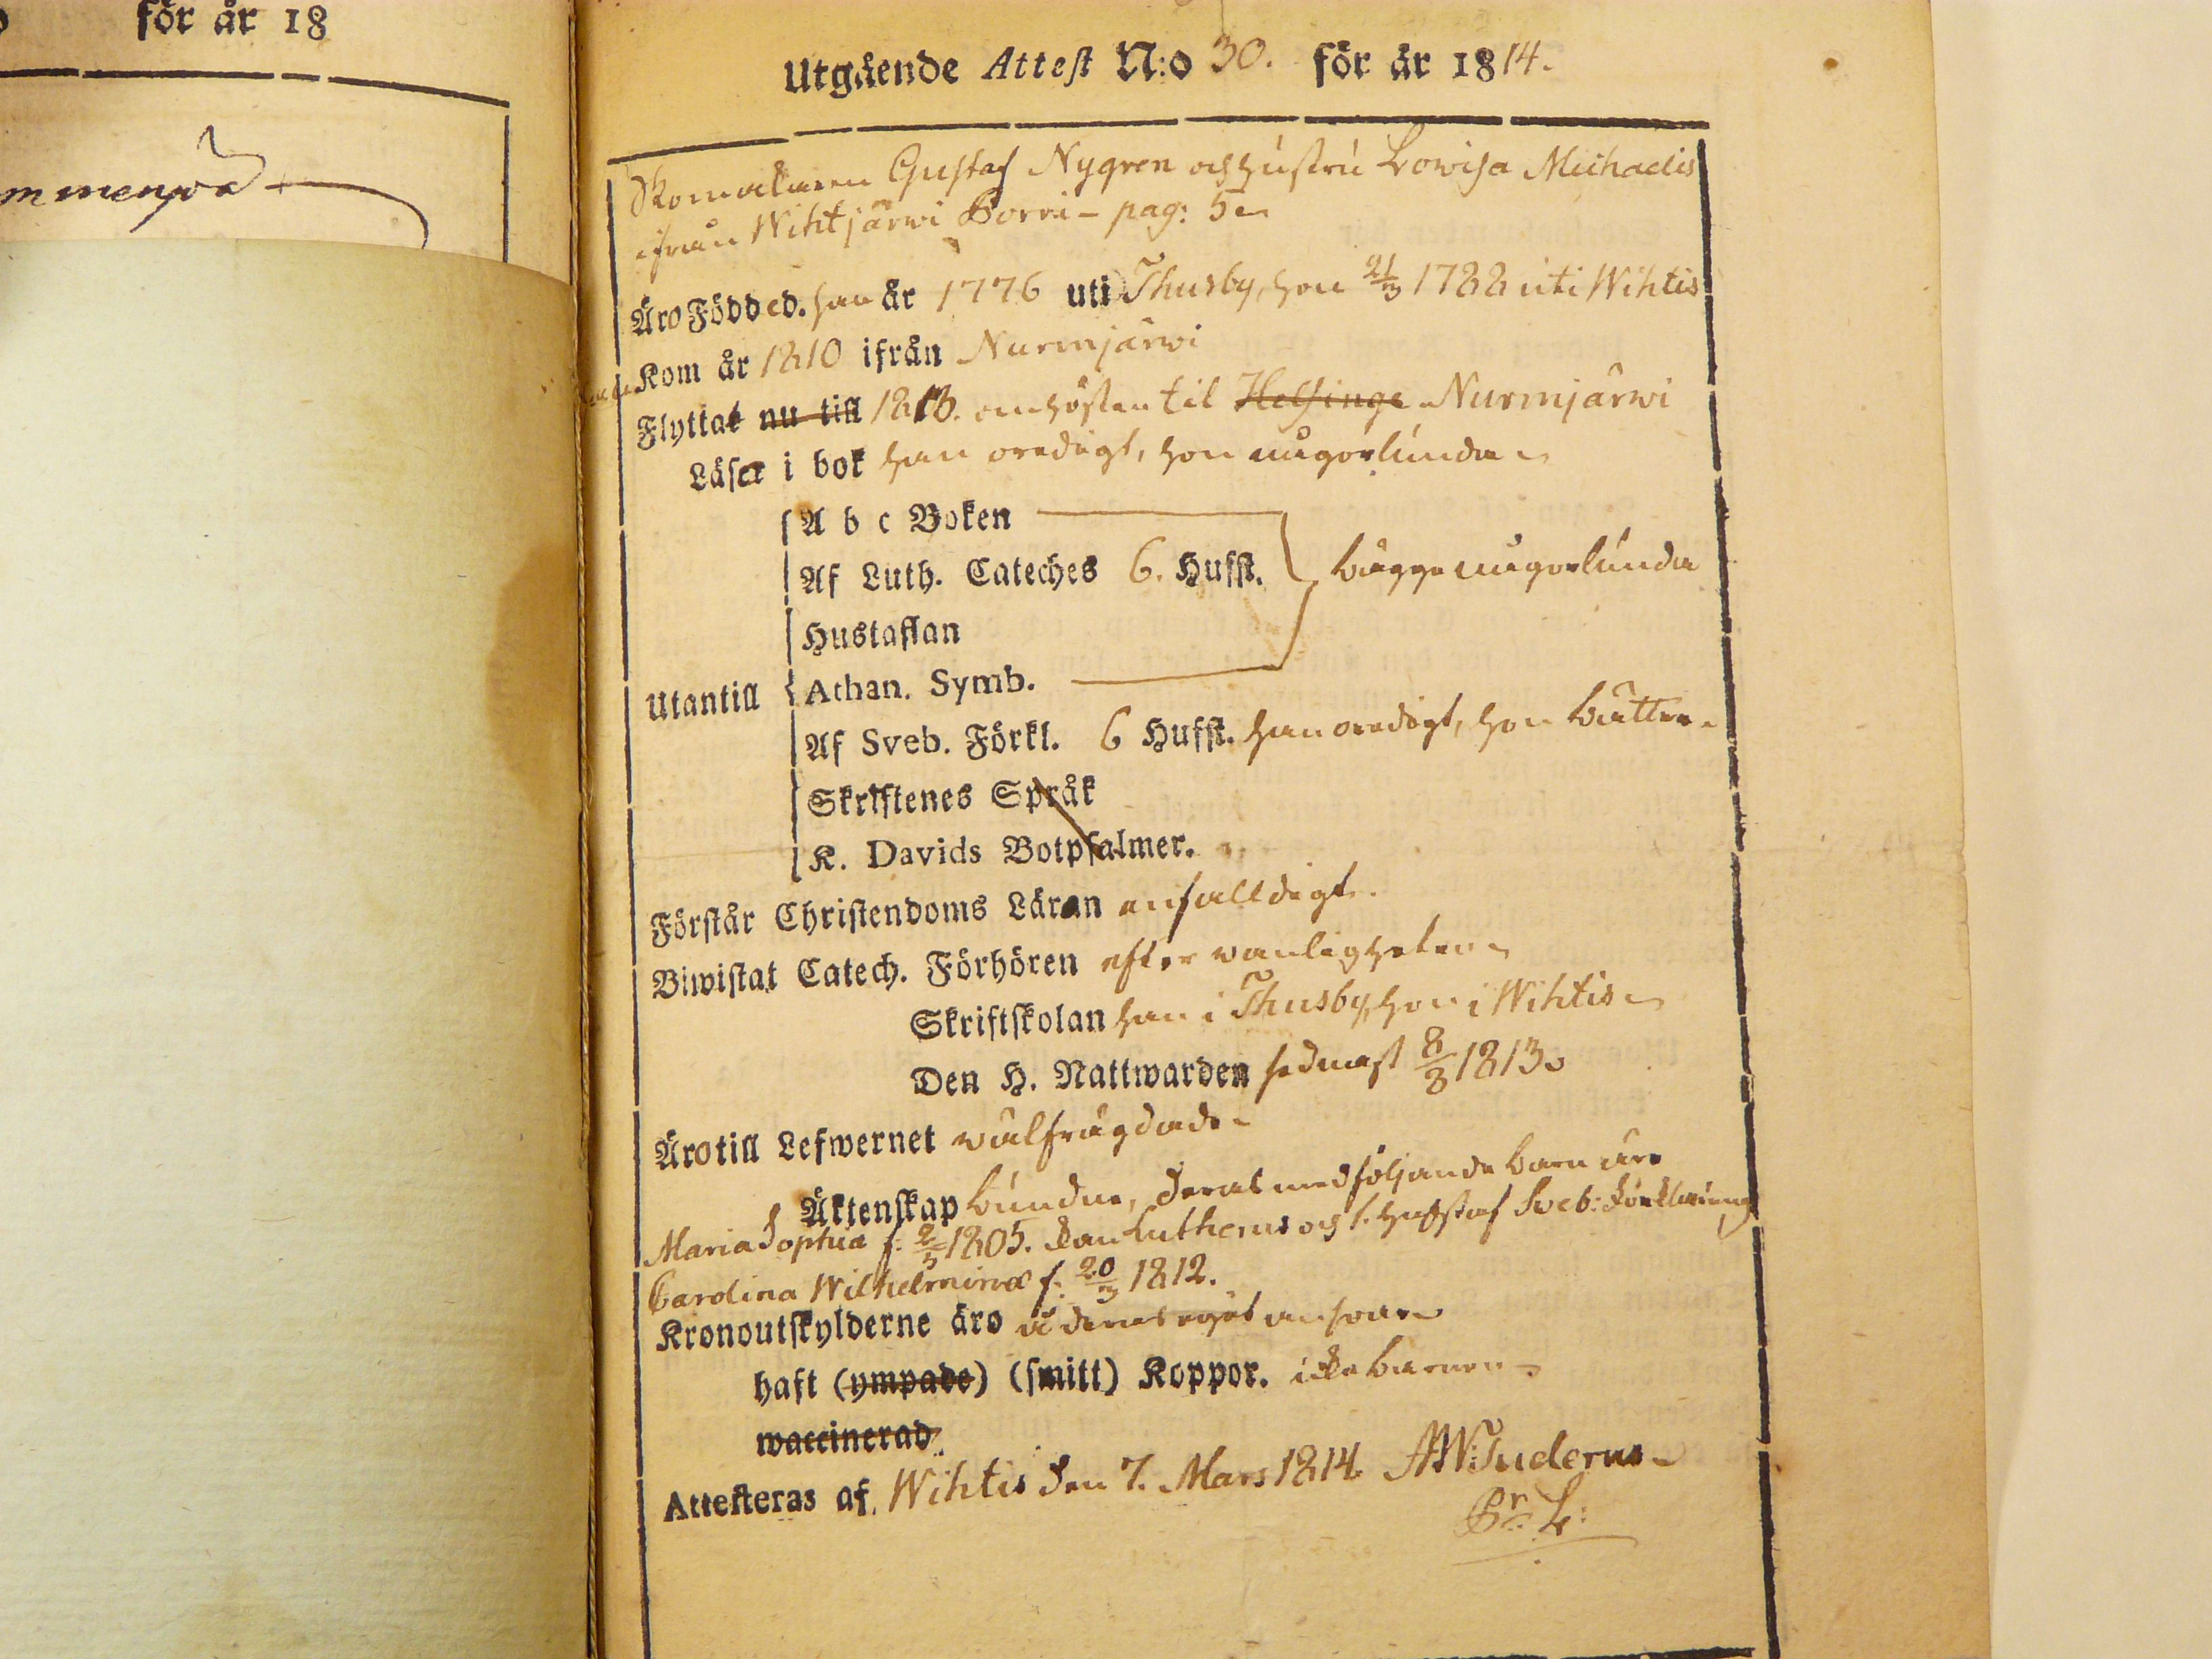 för år 18
mmenso
Utgående Attest N:o 30. för år 1814.
Skomakaren Gustaf Nygren och hustru Lowisa Michaelis
ifrån Wihtjärwi Borri - pag: 5
Äro Födde d. han år 1776 uti Thusby, hon 21/3 1788 uti Wihtis
Kom år 1810 ifrån Nurmjärwi
Flyttat nu till 1813. om hösten til Helsinge Nurmjärwi
Läser i bok han oredigt, hon någorlunda
A b c Boken
Af Luth. Cateches 6. Hufst. bägge någorlunda
Hustaflan
Utantill Athan. Symb.
Af Sveb. Förkl. 6 Hufst. han oredigt, hon bättre
Skriftenes Språk
K. Davids Botpsalmer.
Förstår Christendoms Läran enfalldigt.
Biwistat Catech. Förhören efter wanligheten
Skriftskolan han i Thusby, hon i Wihtis
Den H. Nattwarden sednast 8/8 1813
Äro till Lefwernet wälfrägdade
Äktenskap bundne, deras medföljande barn äro
Maria Sophia f. 2/5 1805. kan Lutherus och 1. hufst af Sveb: Förklaring
Carolina Wilhelmina f. 20/3 1812.
Kronoutskylderne äro å deras eget answar
haft (ympade) (smitt) Koppor. icke barnen
waccinerad
Attesteras af Wihtis den 7. Mars 1814. AW:Tuderus